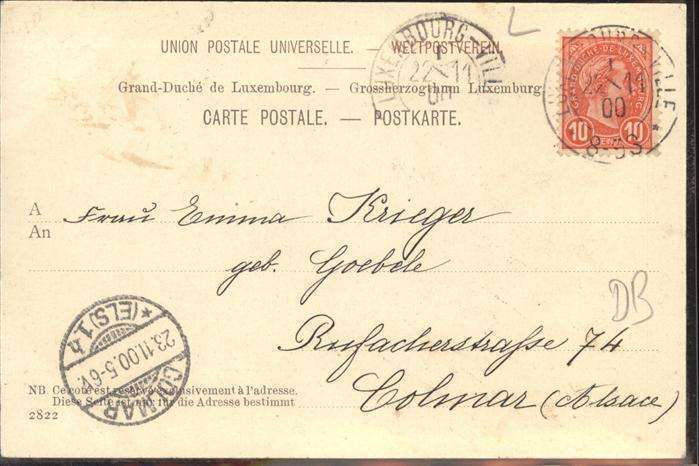 UNION POSTALE UNIVERSELLE. — WELTPOSTVEREIN.
Grand-Duché de Luxembourg. — Grossherzogthum Luxemburg.
CARTE POSTALE. — POSTKARTE.
LUXEMBOURG-VILLE
1
22-11
00
LUXEMBOURG-VILLE *
1
22-11
00
8-9S
GRAND-DUCHÉ DE LUXEMBOURG
10 10
L
A
An
Frau Emma Krieger
geb. Goebele
Rufacherstraße 74
Colmar (Alsace)
DB
COLMAR
* (ELS) 1. h
23.11.00.5-6V.
NB. Ce côté est réservé exclusivement à l'adresse.
Diese Seite ist nur für die Adresse bestimmt
2822